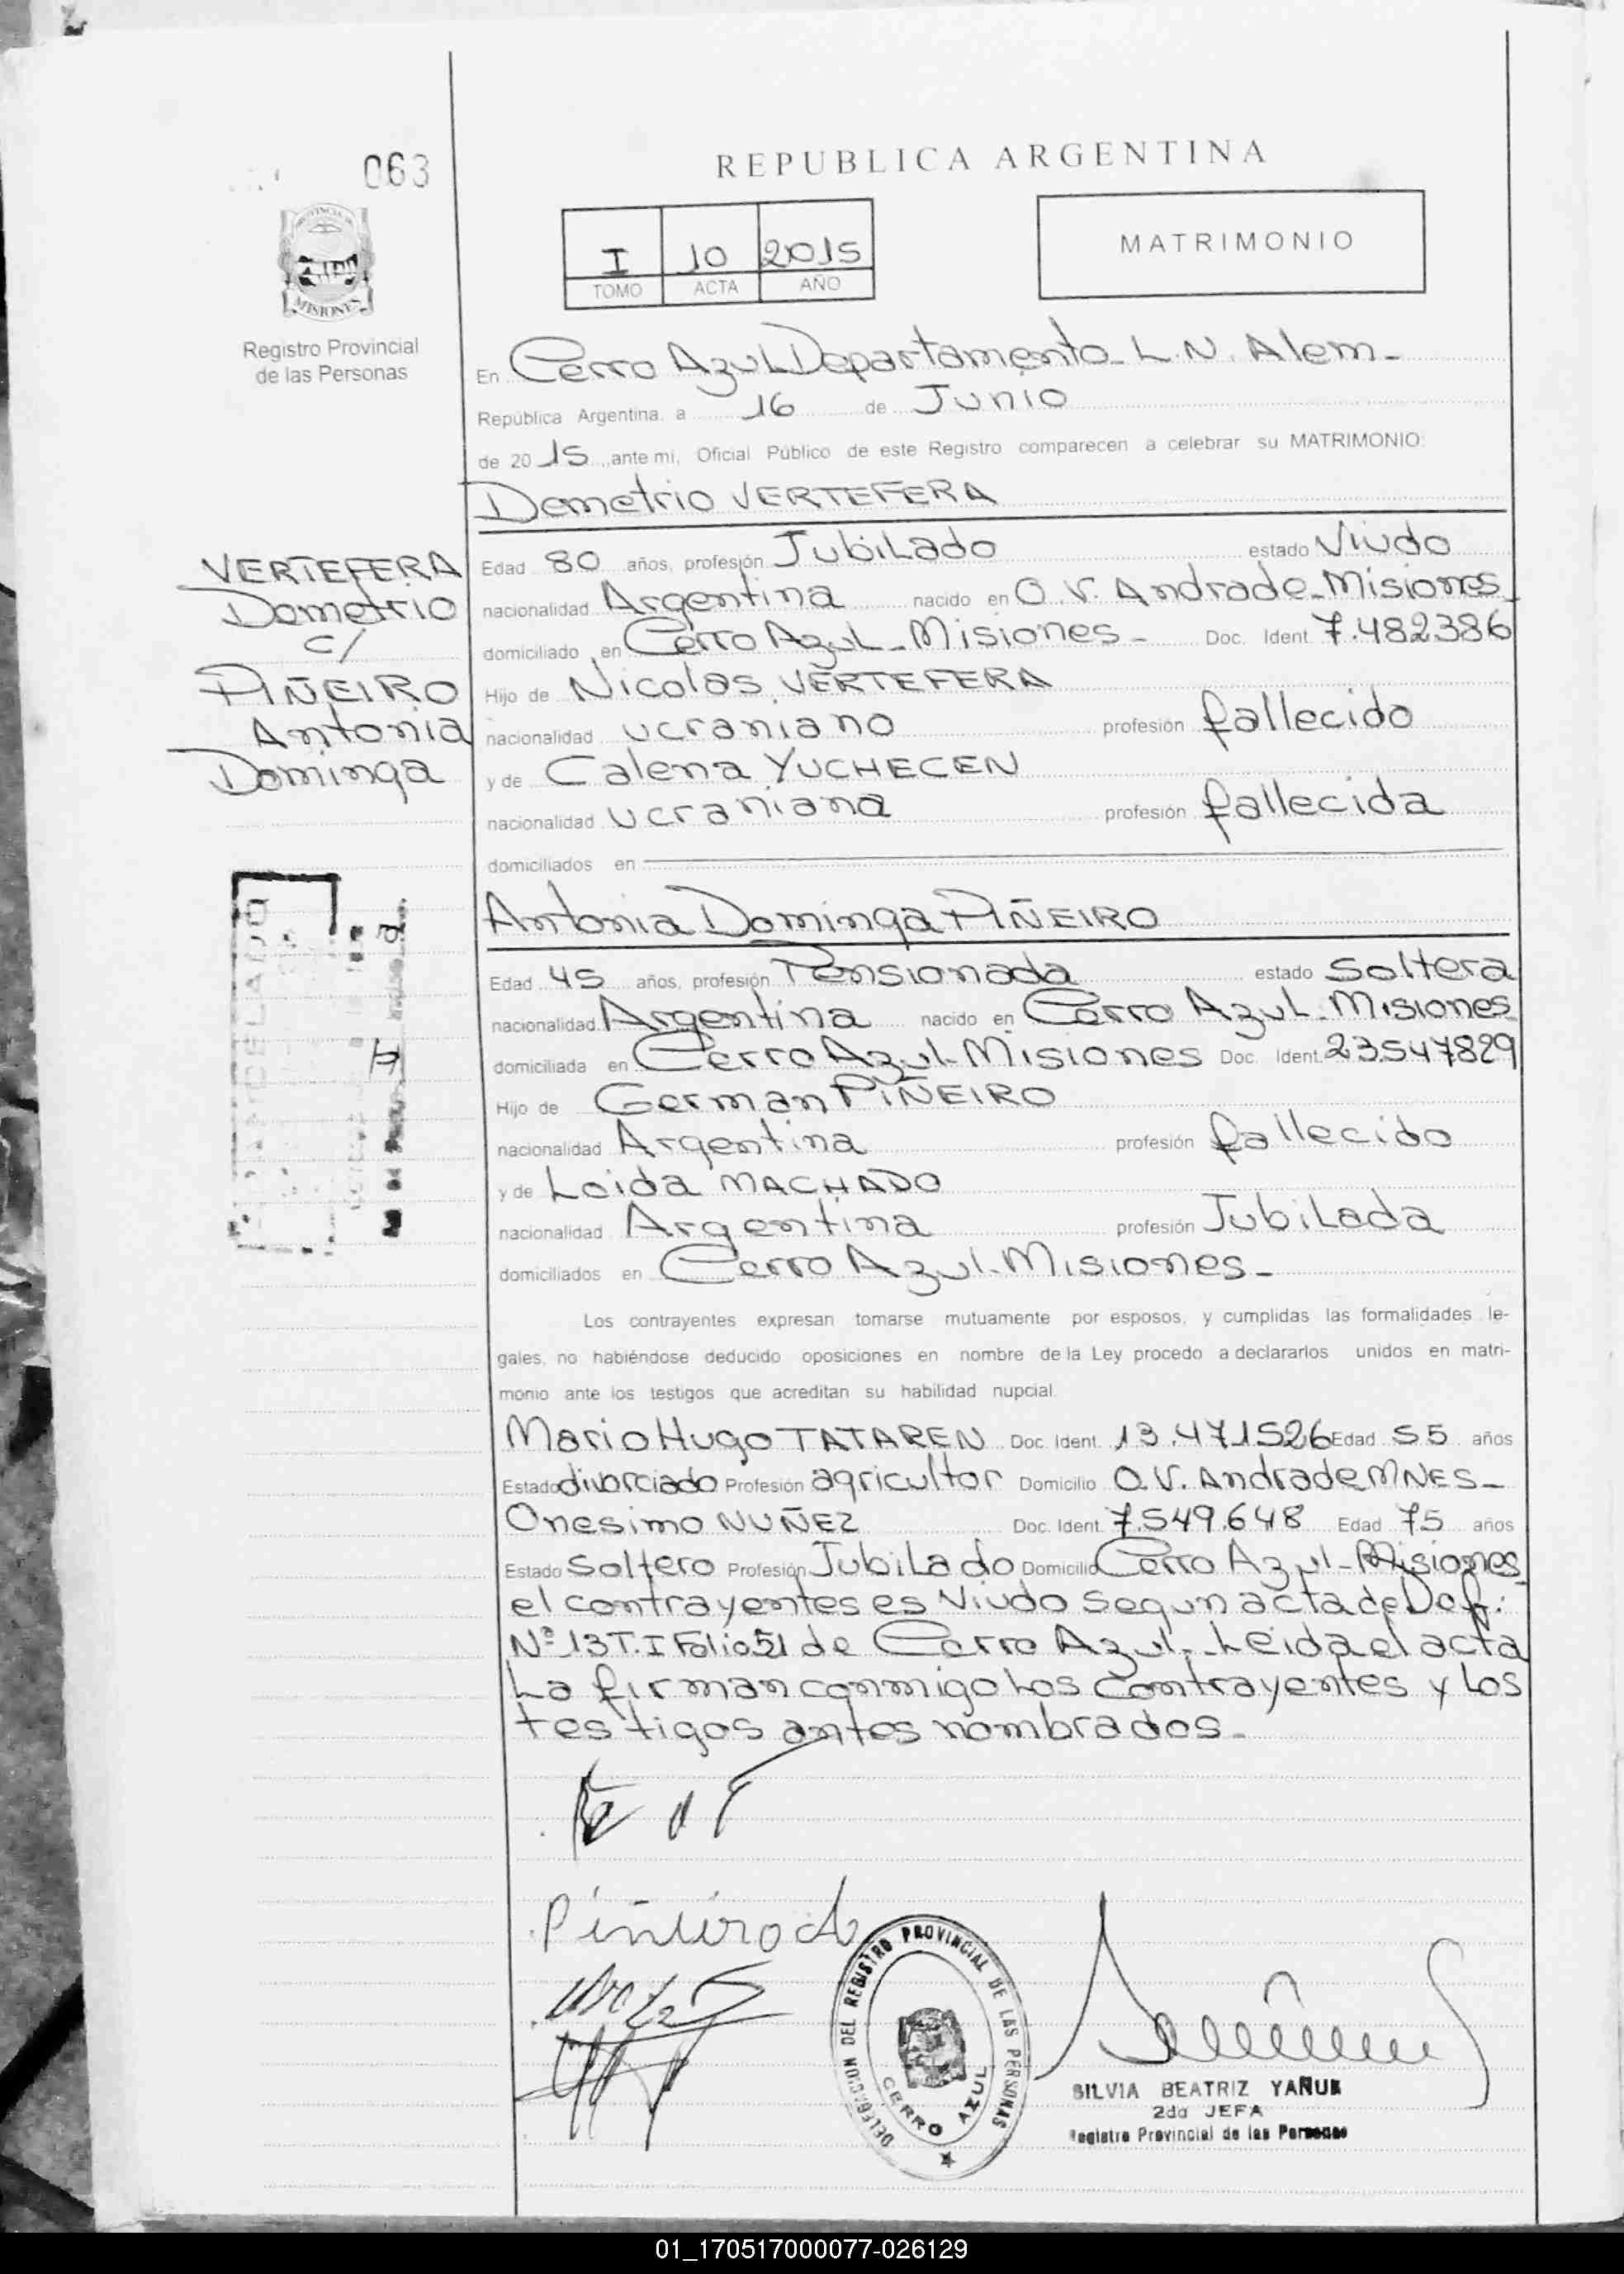 063
REPUBLICA ARGENTINA
I 10 2015
TOMO ACTA AÑO
MATRIMONIO
PROVINCIA DE
MISIONES
Registro Provincial
de las Personas
En Cerro Azul Departamento L.N. Alem-
República Argentina, a 16 de Junio
de 2015, ante mi, Oficial Público de este Registro comparecen a celebrar su MATRIMONIO:
Demetrio VERTEFERA
VERTEFERA
Demetrio
c/
PIÑEIRO
Antonia
Dominga
Edad 80 años, profesión Jubilado estado Viudo
nacionalidad Argentina nacido en O.V. Andrade-Misiones
domiciliado en Cerro Azul-Misiones- Doc. Ident. 7.482386
Hijo de Nicolas VERTEFERA
nacionalidad ucraniano profesión fallecido
y de Calena YUCHECEN
nacionalidad ucraniana profesión fallecida
domiciliados en
Antonia Dominga PIÑEIRO
Edad 45 años, profesión Pensionada estado Soltera
nacionalidad Argentina nacido en Cerro Azul-Misiones
domiciliada en Cerro Azul-Misiones Doc. Ident. 23.547829
Hijo de German PIÑEIRO
nacionalidad Argentina profesión fallecido
y de Loida MACHADO
nacionalidad Argentina profesión Jubilada
domiciliados en Cerro Azul-Misiones-
Los contrayentes expresan tomarse mutuamente por esposos, y cumplidas las formalidades le-
gales, no habiéndose deducido oposiciones en nombre de la Ley procedo a declararlos unidos en matri-
monio ante los testigos que acreditan su habilidad nupcial.
Mario Hugo TATAREN Doc. Ident. 13.471526 Edad 55 años
Estado divorciado Profesión agricultor Domicilio O.V. Andrade MNES-
Onesimo NUÑEZ Doc. Ident. 7.549.648 Edad 75 años
Estado Soltero Profesión Jubilado Domicilio Cerro Azul-Misiones
el contrayentes es Viudo Segun acta de Def:
Nº 13 T.I Folio 51 de Cerro Azul-Leida el acta
La firman conmigo Los Contrayentes y Los
testigos antes nombrados-
Piñeiro A
DELEGACION DEL REGISTRO PROVINCIAL DE LAS PERSONAS
CERRO AZUL
SILVIA BEATRIZ YAÑUK
2da JEFA
Registro Provincial de las Personas
01_170517000077-026129